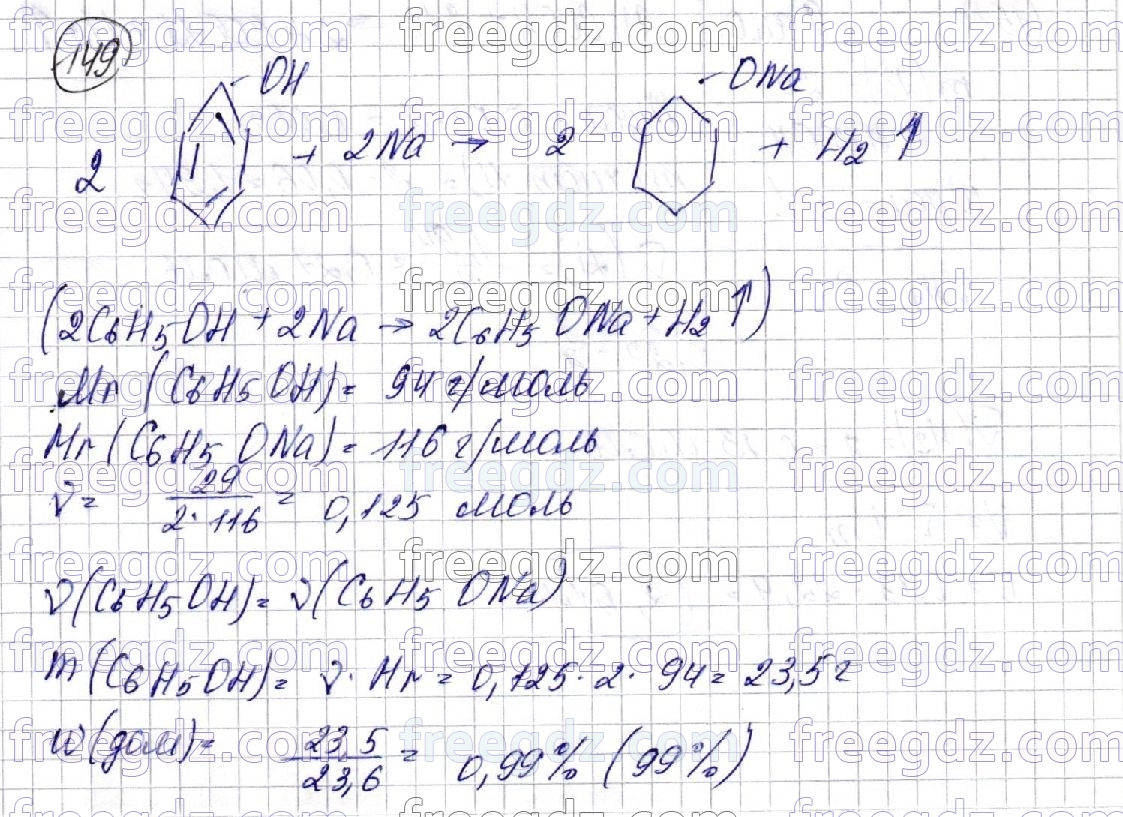 149
2 OH + 2Na → 2 ONa + H2 ↑
(2C6H5OH + 2Na → 2C6H5ONa + H2 ↑)
Mr (C6H5OH) = 94 г/моль
Mr (C6H5ONa) = 116 г/моль
ν = 29 / 2·116 = 0,125 моль
ν (C6H5OH) = ν (C6H5ONa)
m (C6H5OH) = ν · Mr = 0,125 · 2 · 94 = 23,5 г
w (дом) = 23,5 / 23,6 = 0,99% (99%)
freegdz.com